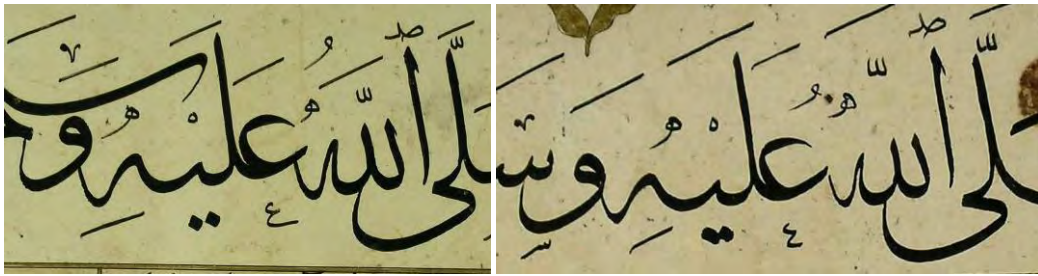 لَّى ٱللَّهُ عَلَيْهِ وَسَـ
لَّى ٱللَّهُ عَلَيْهِ وَسَـ